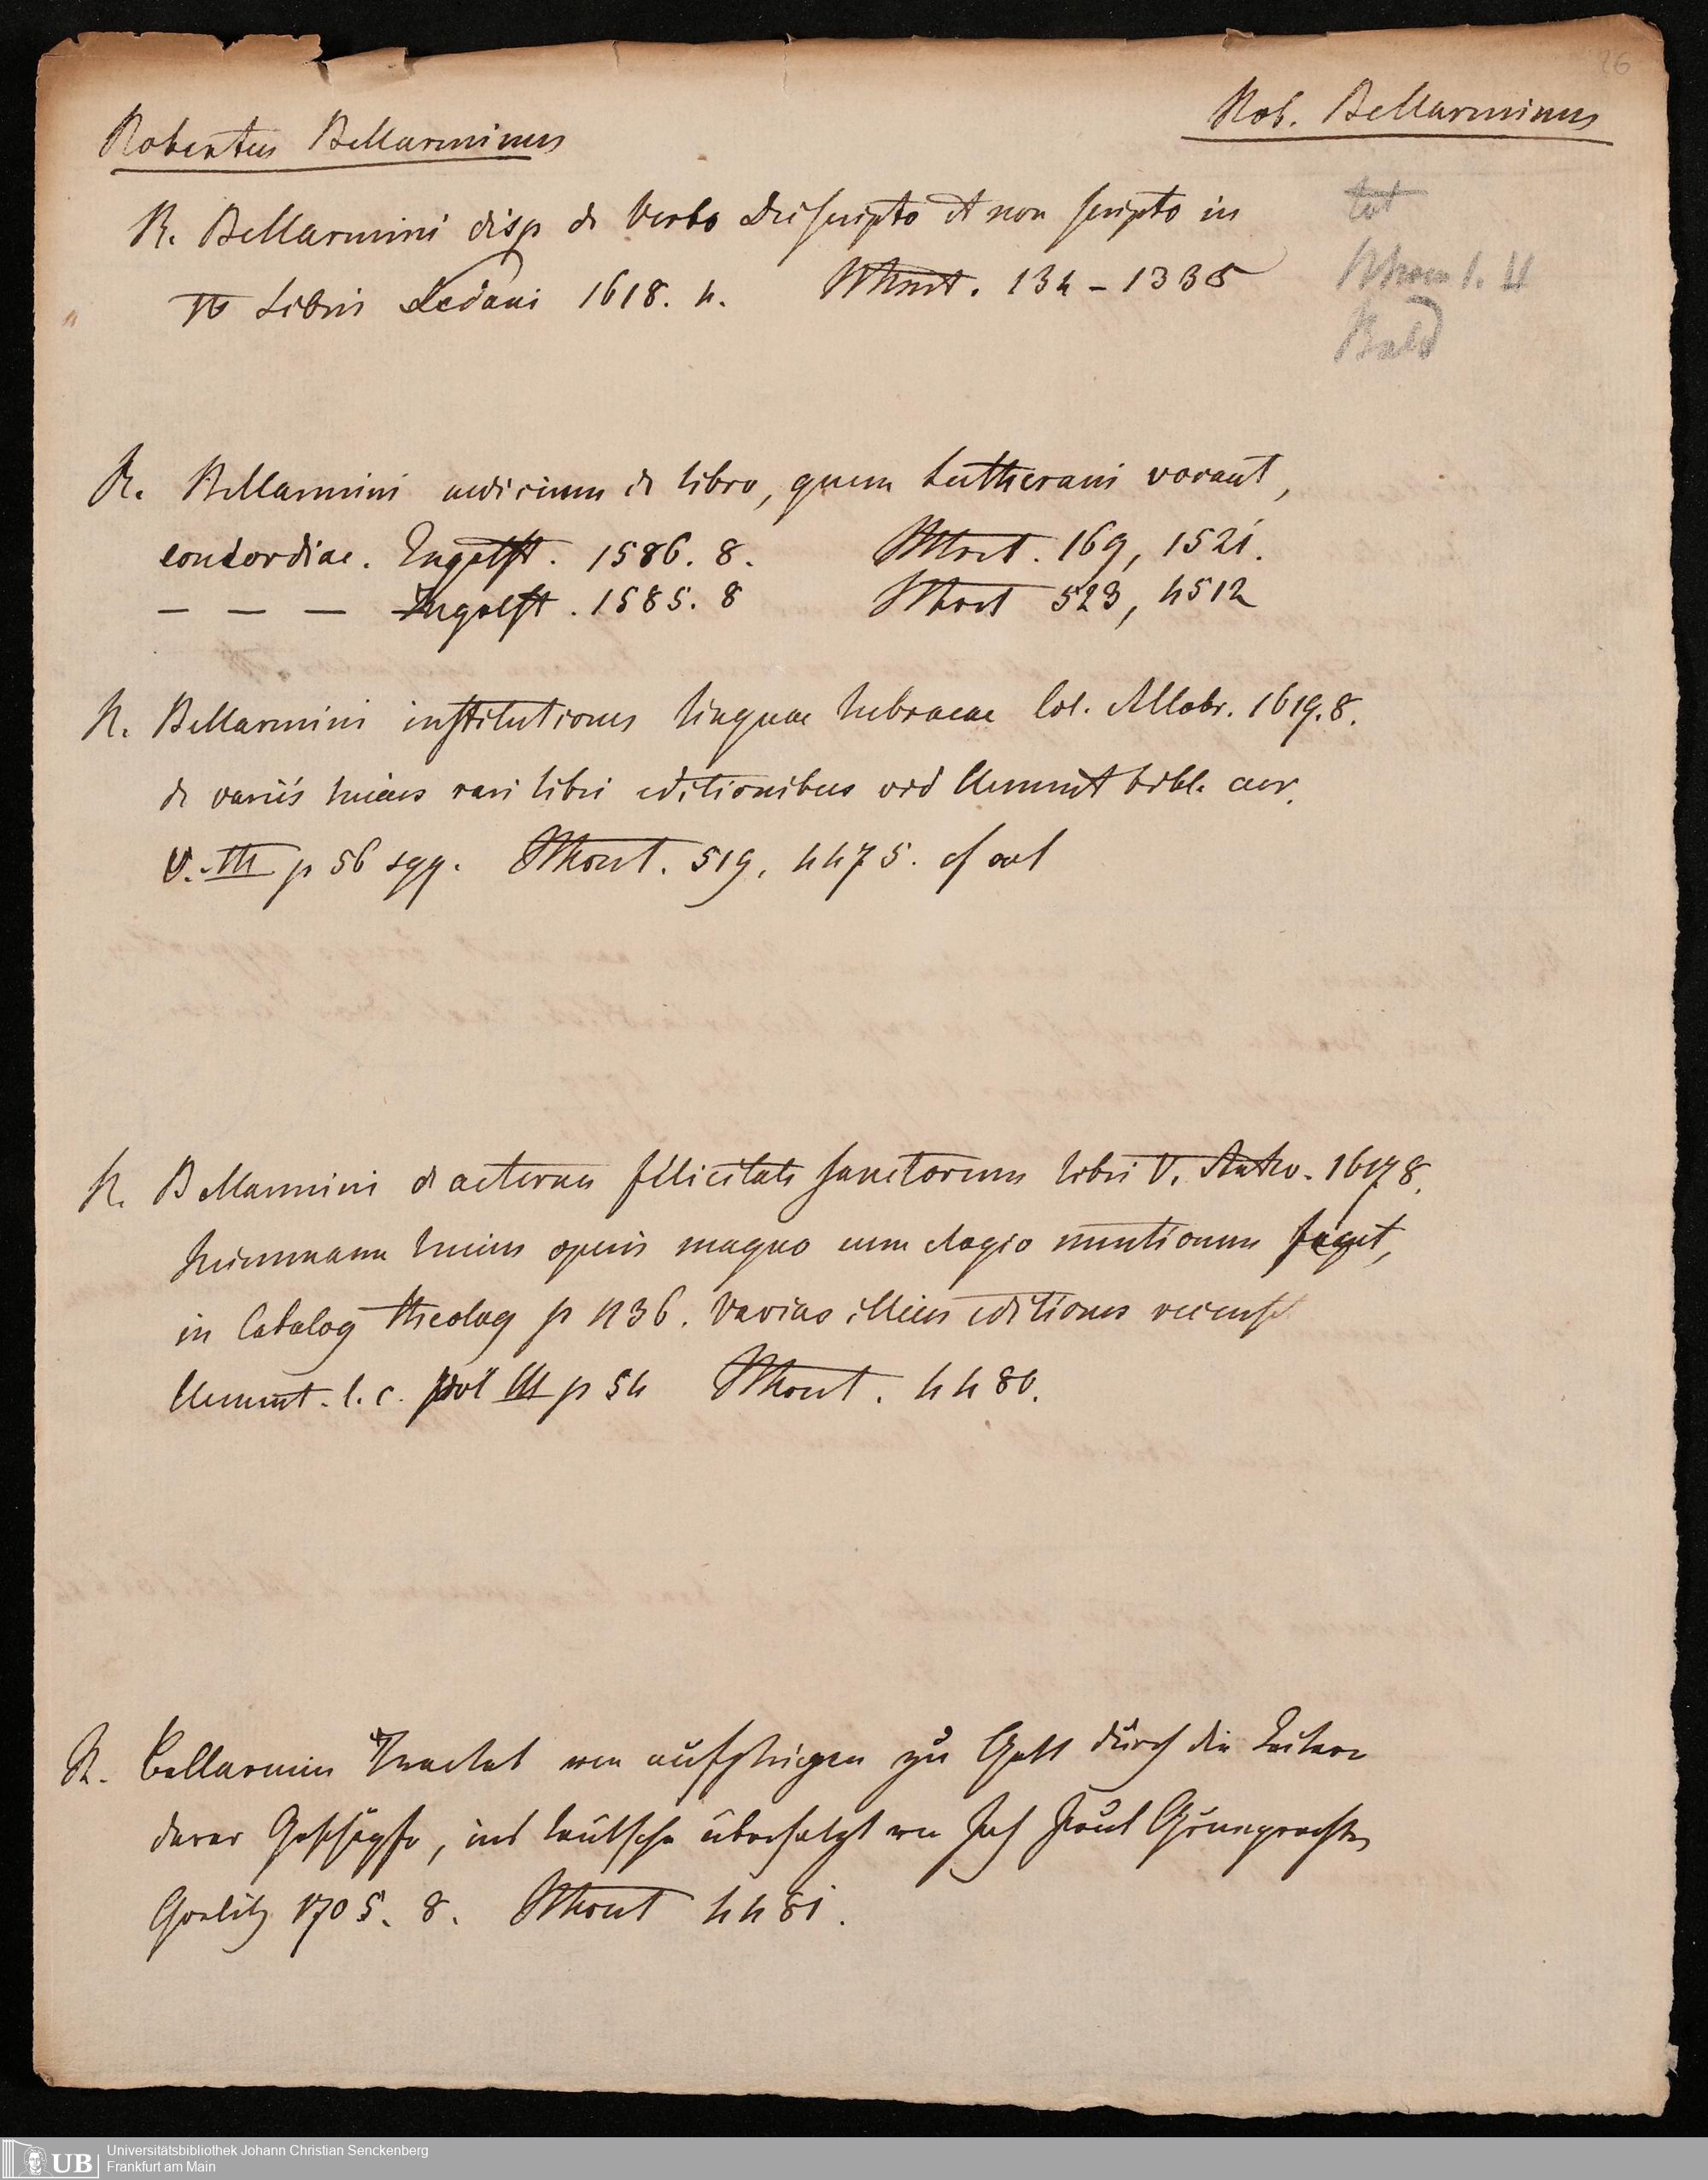 26
Rob. Bellarminus
Robertus Bellarminus
R. Bellarmini disp de Verbo Dei scripto et non scripto in
IV Libris Sedani 1618. 4. Mont. 134 - 1335
tot
Bald
R. Bellarmini iudicium de libro, quem Lutherani vocant,
concordiae. Ingolst. 1586. 8. Mont. 169, 1521.
— — — Ingolst. 1585. 8 Mont 523, 4512
R. Bellarmini institutiones linguae hebraeae Col. Allobr. 1619. 8.
de variis huius rari libri editionibus vid Clement bibl. cur.
V. III p 56 sqq. Mont. 519, 4475. cf
R. Bellarmini de aeterna felicitate sanctorum libri V. Antw. 1617 8.
Heumann huius operis magno cum elogio mentionem
in Catalog theolog p 436. Varias illius editiones recenset
Clement. l. c. vol III p 54 Mont. 4480.
R. Bellarmin Tractat von aufsteigen zu Gott durch die Leitern
derer Geschöpfe, ins teutsche übersetzt von Paul
Goerlitz 1705. 8. Mont 4481.
UB
Universitätsbibliothek Johann Christian Senckenberg
Frankfurt am Main